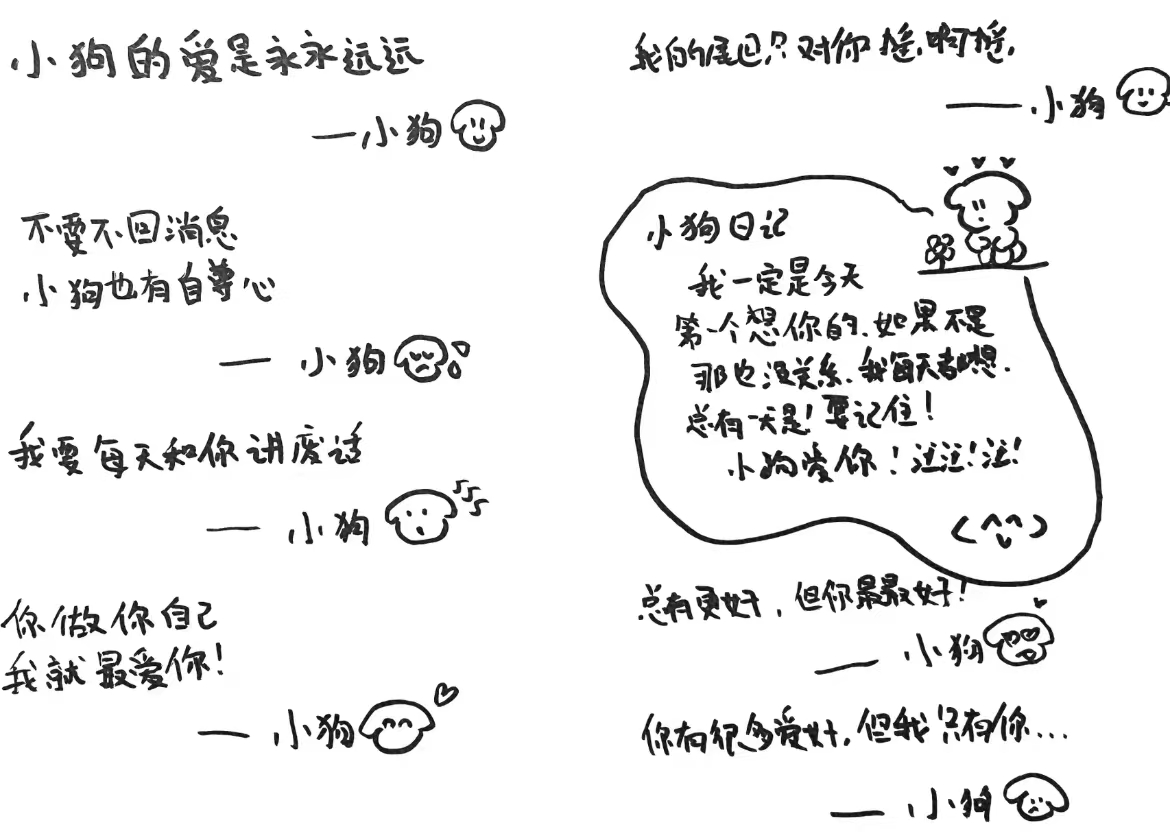 小狗的爱是永永远远
—小狗
不要不回消息
小狗也有自尊心
— 小狗
我要每天和你讲废话
— 小狗
你做你自己
我就最爱你!
— 小狗
我的尾巴只对你摇啊摇.
—— 小狗
小狗日记
我一定是今天
第一个想你的.如果不是
那也没关系.我每天都想.
总有一天是!要记住!
小狗爱你!汪汪!汪!
总有更好,但你最最好!
—— 小狗
你有很多爱好,但我只有你...
—— 小狗